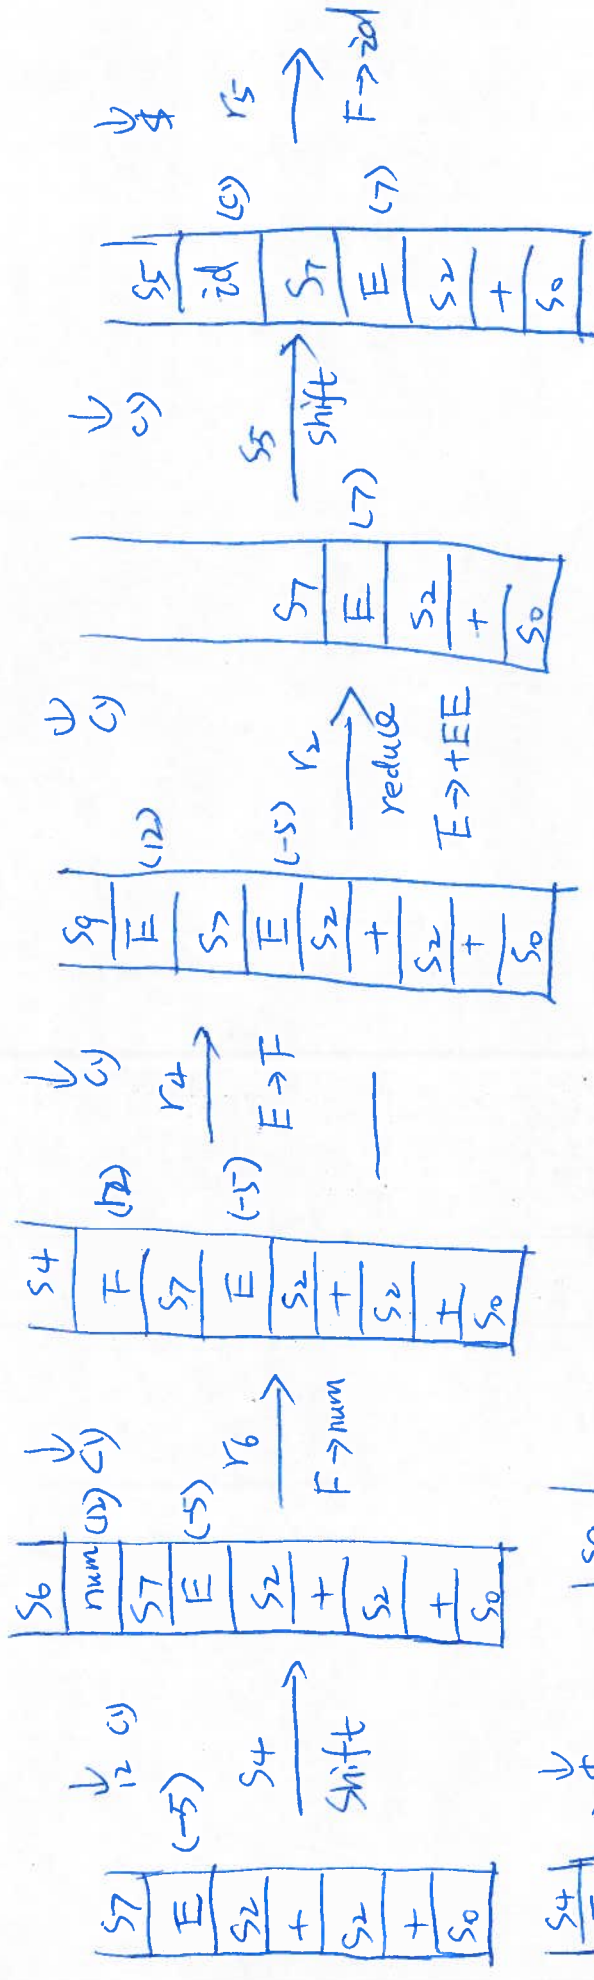 ↓
12 (y)
S7
E (-5)
S2
+
S2
+
S0
S4
Shift
↓
(y)
S6
num (12)
S7
E (-5)
S2
+
S2
+
S0
r6
F→num
↓
(y)
S4
F (12)
S7
E (-5)
S2
+
S2
+
S0
r4
E→F
↓
(y)
S9
E (12)
S7
E (-5)
S2
+
S2
+
S0
r2
reduce
E→+EE
↓
(y)
S7
E (7)
S2
+
S0
S5
shift
↓
$
S5
id (y)
S7
E (7)
S2
+
S0
r5
F→id
↓
S4